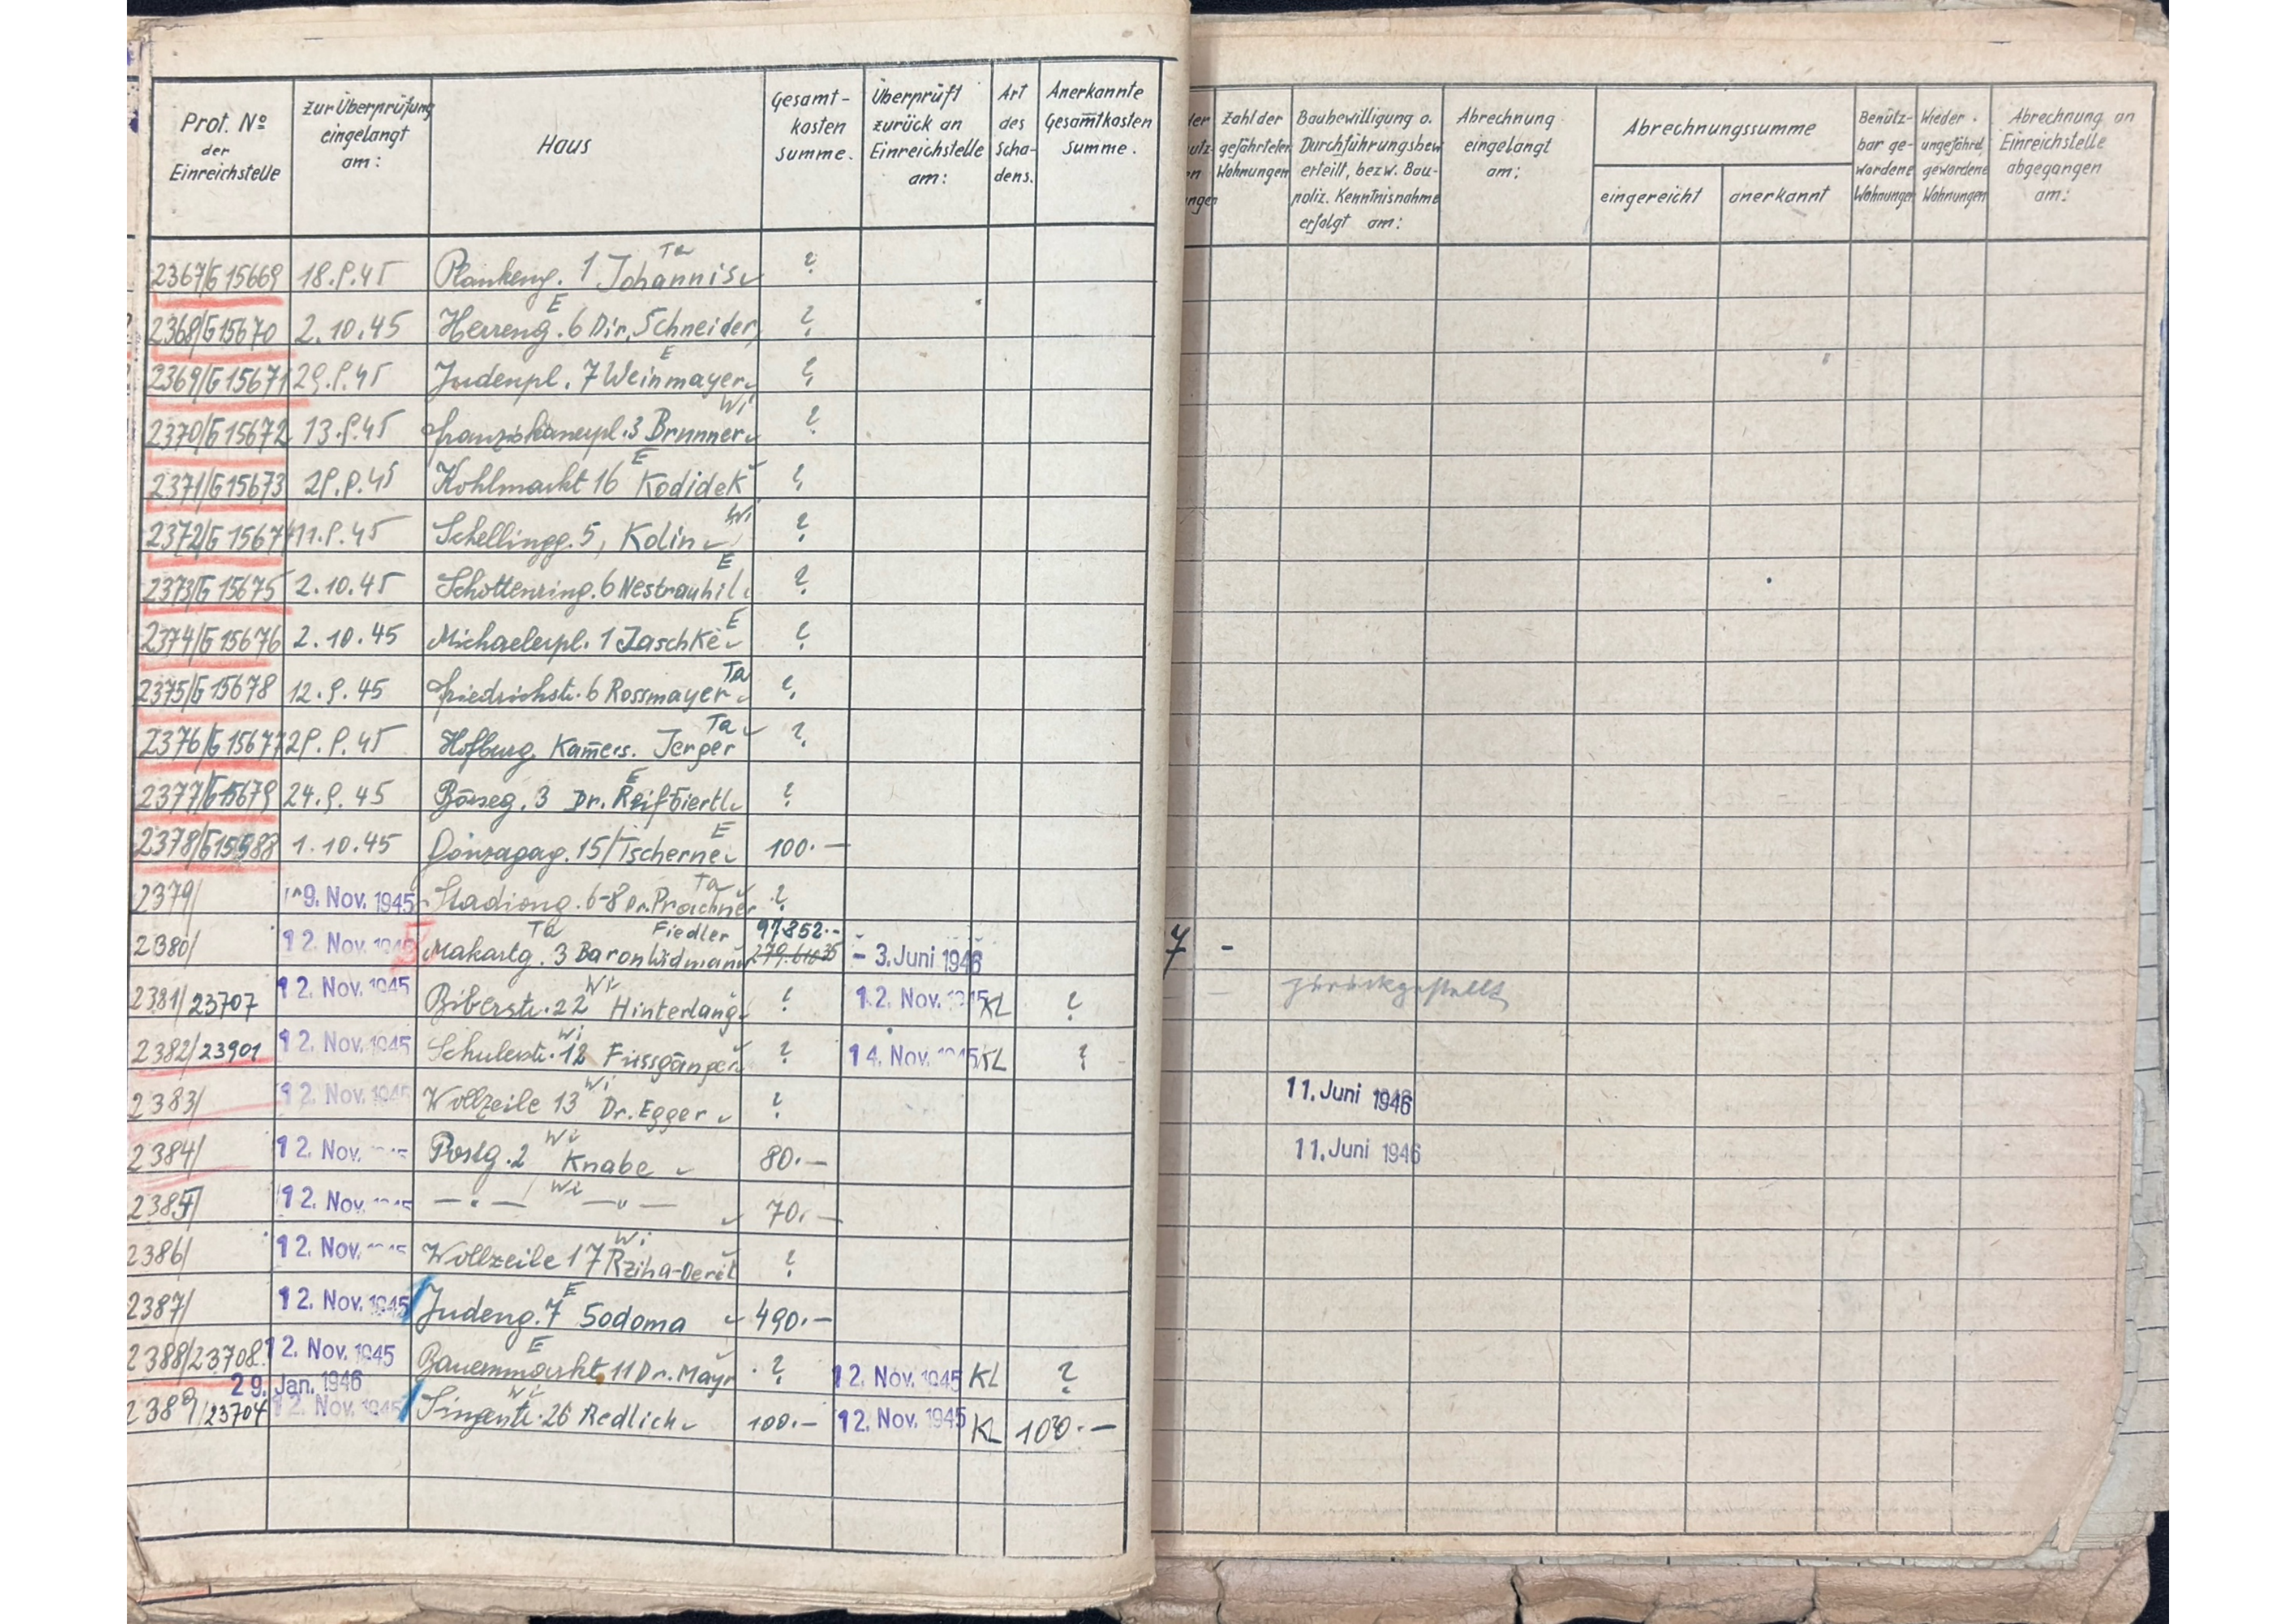 Prot. No der Einreichstelle | Zur Überprüfung eingelangt am: | Haus | Gesamt-kosten summe. | Überprüft zurück an Einreichstelle am: | Art des Scha-dens. | Anerkannte Gesamtkosten summe. | Zahl der gefährteten Wohnungen | Baubewilligung o. Durchführungsbew. erteilt, bezw. Bau-poliz. Kenntnisnahme erfolgt am: | Abrechnung eingelangt am: | Abrechnungssumme eingereicht | anerkannt | Benütz-bar ge-wordene Wohnungen | Wieder ungefährd. gewordene Wohnungen | Abrechnung an Einreichstelle abgegangen am:
2367/G 15669 | 18.9.45 | Plankeng. 1 Johannis Ta | ?
2368/G 15670 | 2.10.45 | Herreng. 6 Dir. Schneider E | ?
2369/G 15671 | 29.9.45 | Judenpl. 7 Weinmayer E | ?
2370/G 15672 | 13.9.45 | Franziskanerpl. 3 Brunner Wi | ?
2371/G 15673 | 29.9.45 | Kohlmarkt 16 Kodidek E | ?
2372/G 15674 | 11.9.45 | Schellingg. 5, Kolin Wi | ?
2373/G 15675 | 2.10.45 | Schottenring. 6 Nestrauhil E | ?
2374/G 15676 | 2.10.45 | Michaelerpl. 1 Jaschke E | ?
2375/G 15678 | 12.9.45 | Friedrichstr. 6 Rossmayer Ta | ?
2376/G 15677 | 29.9.45 | Hofburg, Kamers. Jerger Ta | ?
2377/G 15679 | 24.9.45 | Börseg. 3 Dr. E | ?
2378/ | 1.10.45 | Gonzagag. 15/Tscherne E | 100.—
2379/ | 9. Nov. 1945 | Stadiong. 6-8 Dr. Prachner Ta | ?
2380/ | 12. Nov. 1945 | Makartg. 3 Baron Widmann Fiedler Ta | 97.852.- | - 3. Juni 1946 | 7 | -
2381/23707 | 12. Nov. 1945 | Biberstr. 22 Hinterlang Wi | ? | 12. Nov. 1945 | KL | ? | zurückgestellt
2382/23901 | 12. Nov. 1945 | Schulerstr. 12 Fussgänger Wi | ? | 14. Nov. 1945 | KL | ?
2383/ | 12. Nov. 1945 | Wollzeile 13 Dr. Egger Wi | ? | 11. Juni 1946
2384/ | 12. Nov. | Postg. 2 Knabe Wi | 80.— | 11. Juni 1946
2385/ | 12. Nov. 1945 | —"— Wi —"— | 70.—
2386/ | 12. Nov. | Wollzeile 17 Rziha- Wi | ?
2387/ | 12. Nov. 1945 | Judeng. 7 Sodoma E | 490.—
2388/23708 | 12. Nov. 1945 | Bauernmarkt 11 Dr. Mayr E | ? | 12. Nov. 1945 | KL | ?
29. Jan. 1946
2389/23704 | 12. Nov. 1945 | Singerstr. 26 Redlich Wi | 100.— | 12. Nov. 1945 | KL | 100.—